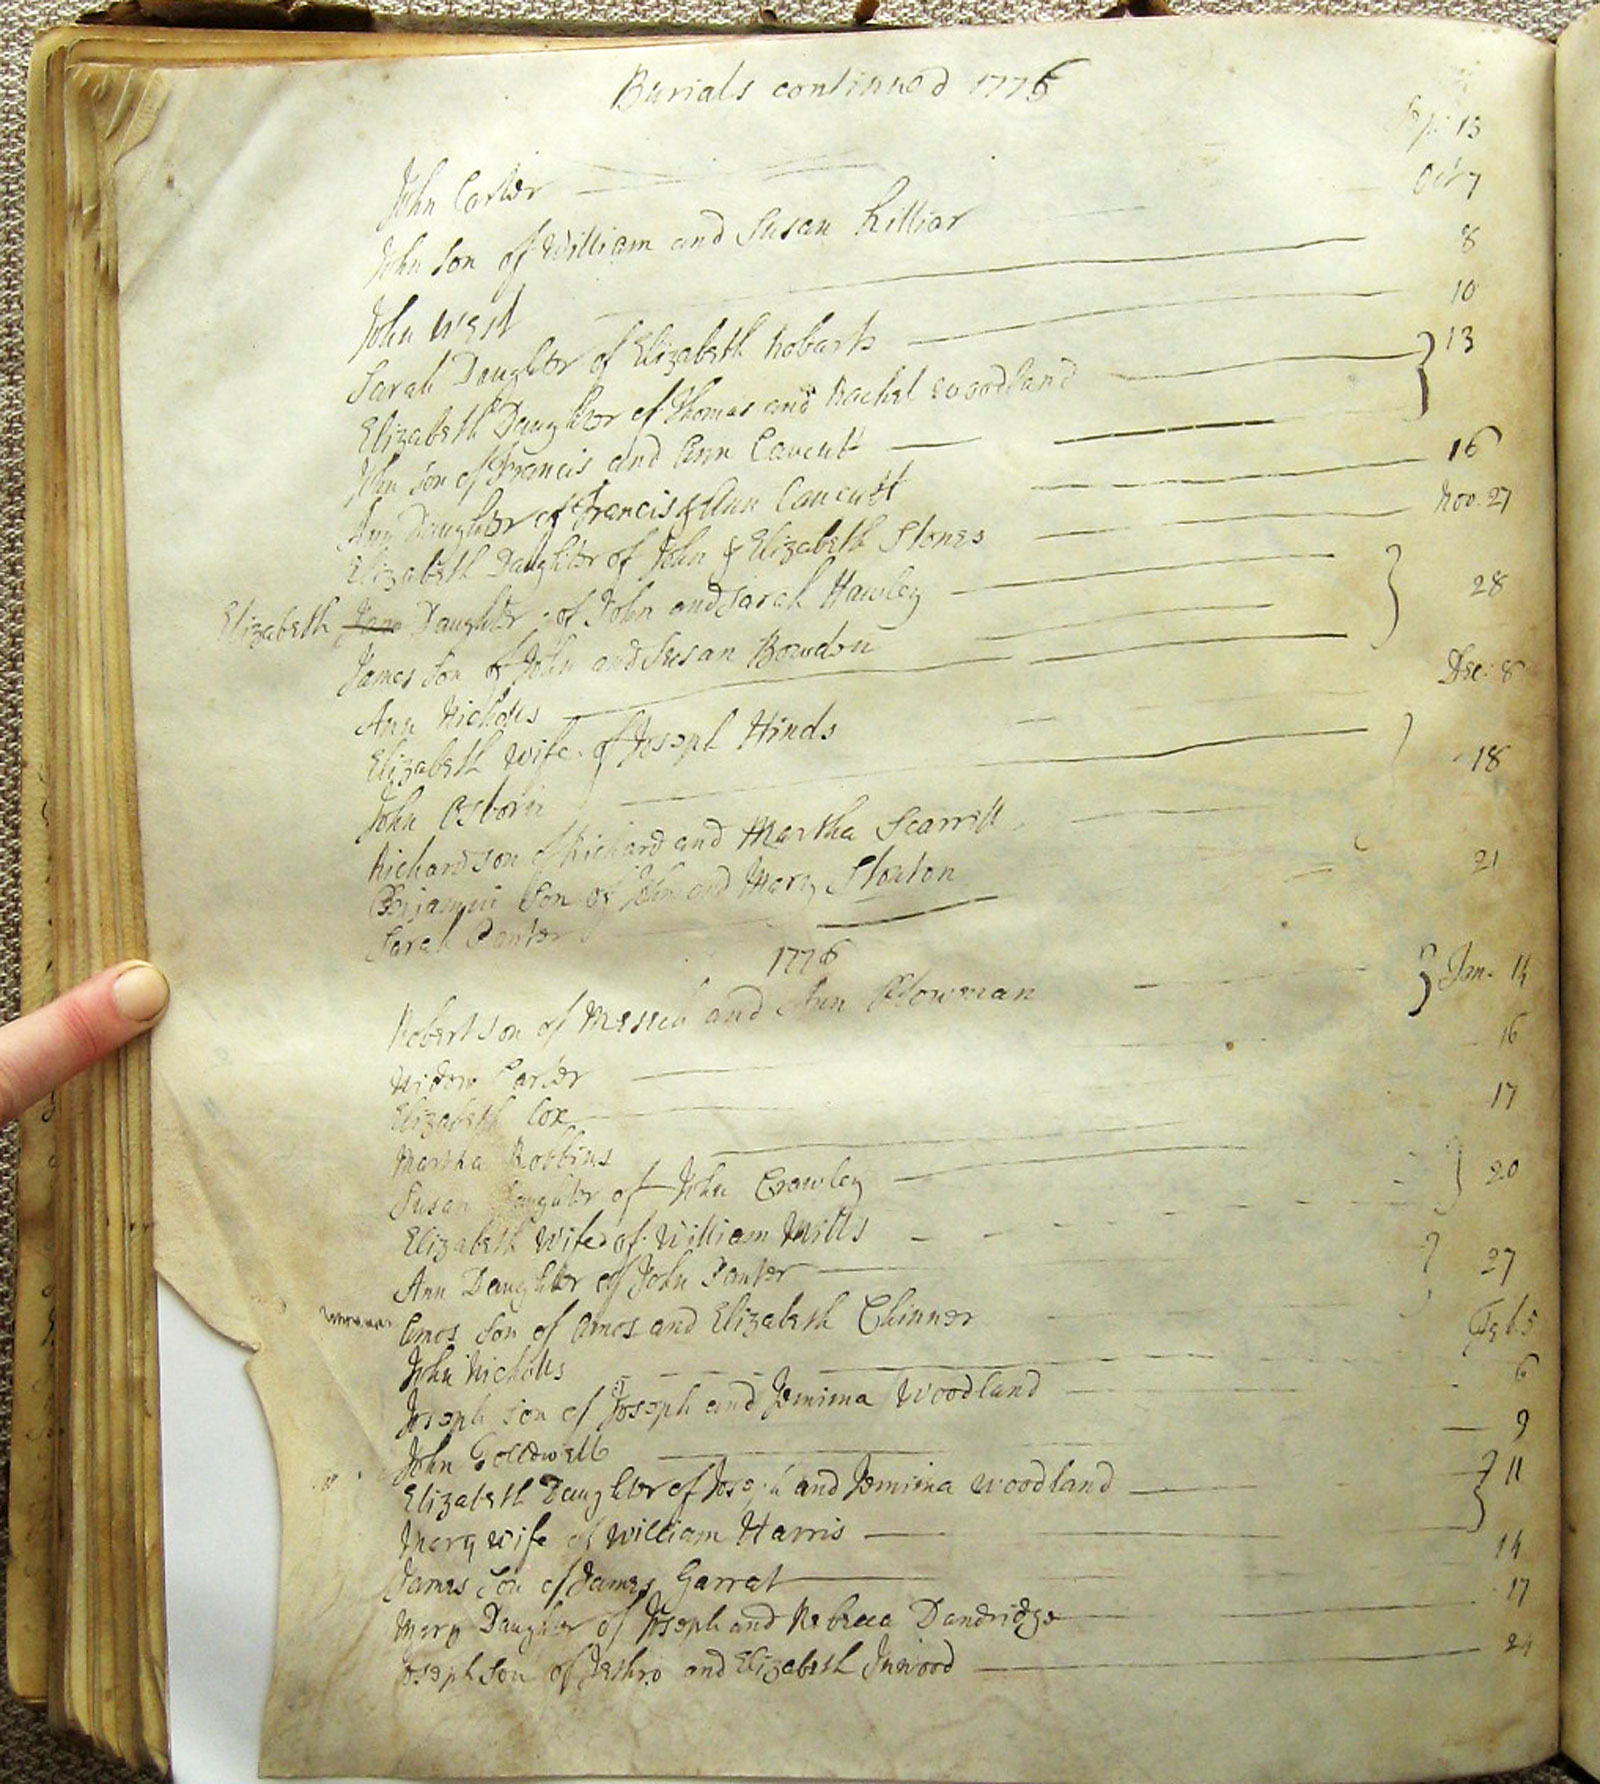 Burials continued 1775
John Carter Sep. 13
John Son of William and Susan Hilliar Oct 7
John West 8
Sarah Daughter of Elizabeth Robarts 10
Elizabeth Daughter of Thomas and Rachel Woodland 13
John Son of Francis and Ann Caucutt
Ann Daughter of Francis & Ann Caucutt 16
Elizabeth Daughter of John & Elizabeth Stones Nov. 27
Elizabeth Jane Daughter of John and Sarah Hawley
James Son of John and Susan Bowdon 28
Ann Nicholls
Elizabeth Wife of Joseph Hinds Dec: 8
John Osborn 18
Richard son of Richard and Martha Scarrett
Benjamin Son of John and Mary Stouton
Sarah Panter 21
1776
Robert Son of Mesech and Ann Plowman Jan. 14
Widow Carter
Elizabeth Cox 16
Martha Robbins 17
Susan Daughter of John Crawley 20
Elizabeth Wife of William Mills
Ann Daughter of John Panter 27
Amos Son of Amos and Elizabeth Chinner
John Nicholls Feb. 5
Joseph Son of Joseph and Jemima Woodland 6
John 9
Elizabeth Daughter of Joseph and Jemima Woodland 11
Mary Wife of William Harris
James Son of James Garrat 14
Mary Daughter of Joseph and Rebecca Dandridge 17
Joseph Son of Jethro and Elizabeth Inwood 24